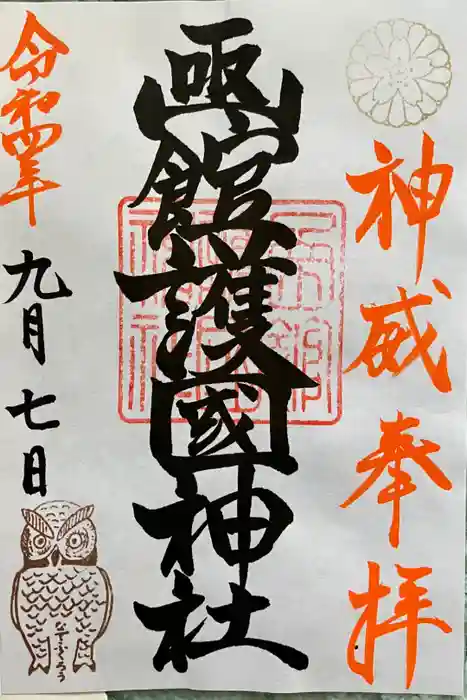 神威奉拝
凾館護國神社
令和四年
九月七日
なでふくろう